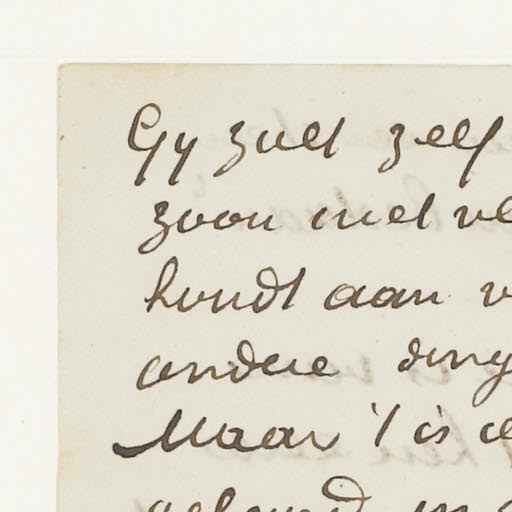 Gy zult zelf
zoon met ve
houdt aan v
andere ding
Maar 't is